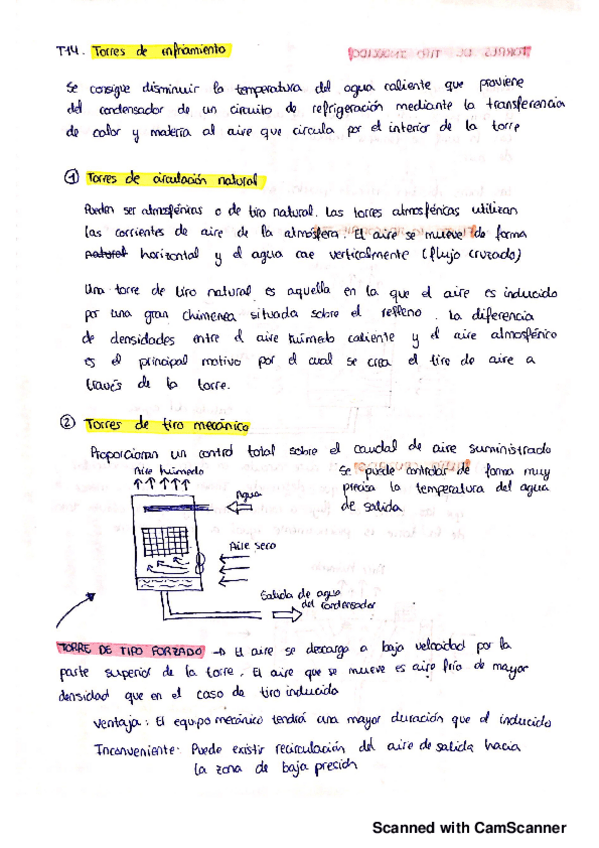 T14. Torres de enfriamiento
Se consigue disminuir la temperatura del agua caliente que proviene
del condensador de un circuito de refrigeración mediante la transferencia
de calor y materia al aire que circula por el interior de la torre
① Torres de circulación natural
Pueden ser atmosféricas o de tiro natural. Las torres atmosféricas utilizan
las corrientes de aire de la atmósfera. El aire se mueve de forma
natural horizontal y el agua cae verticalmente (flujo cruzado)
Una torre de tiro natural es aquella en la que el aire es inducido
por una gran chimenea situada sobre el relleno. La diferencia
de densidades entre el aire húmedo caliente y el aire atmosférico
es el principal motivo por el cual se crea el tiro de aire a
través de la torre.
② Torres de tiro mecánico
Proporcionan un control total sobre el caudal de aire suministrado
Aire húmedo
Se puede controlar de forma muy
precisa la temperatura del agua
de salida
Agua
Aire seco
Salida de agua
del condensador
TORRE DE TIPO FORZADO → El aire se descarga a baja velocidad por la
parte superior de la torre. El aire que se mueve es aire frío de mayor
densidad que en el caso de tiro inducido
Ventaja: El equipo mecánico tendrá una mayor duración que el inducido
Inconveniente: Puede existir recirculación del aire de salida hacia
la zona de baja presión
Scanned with CamScanner